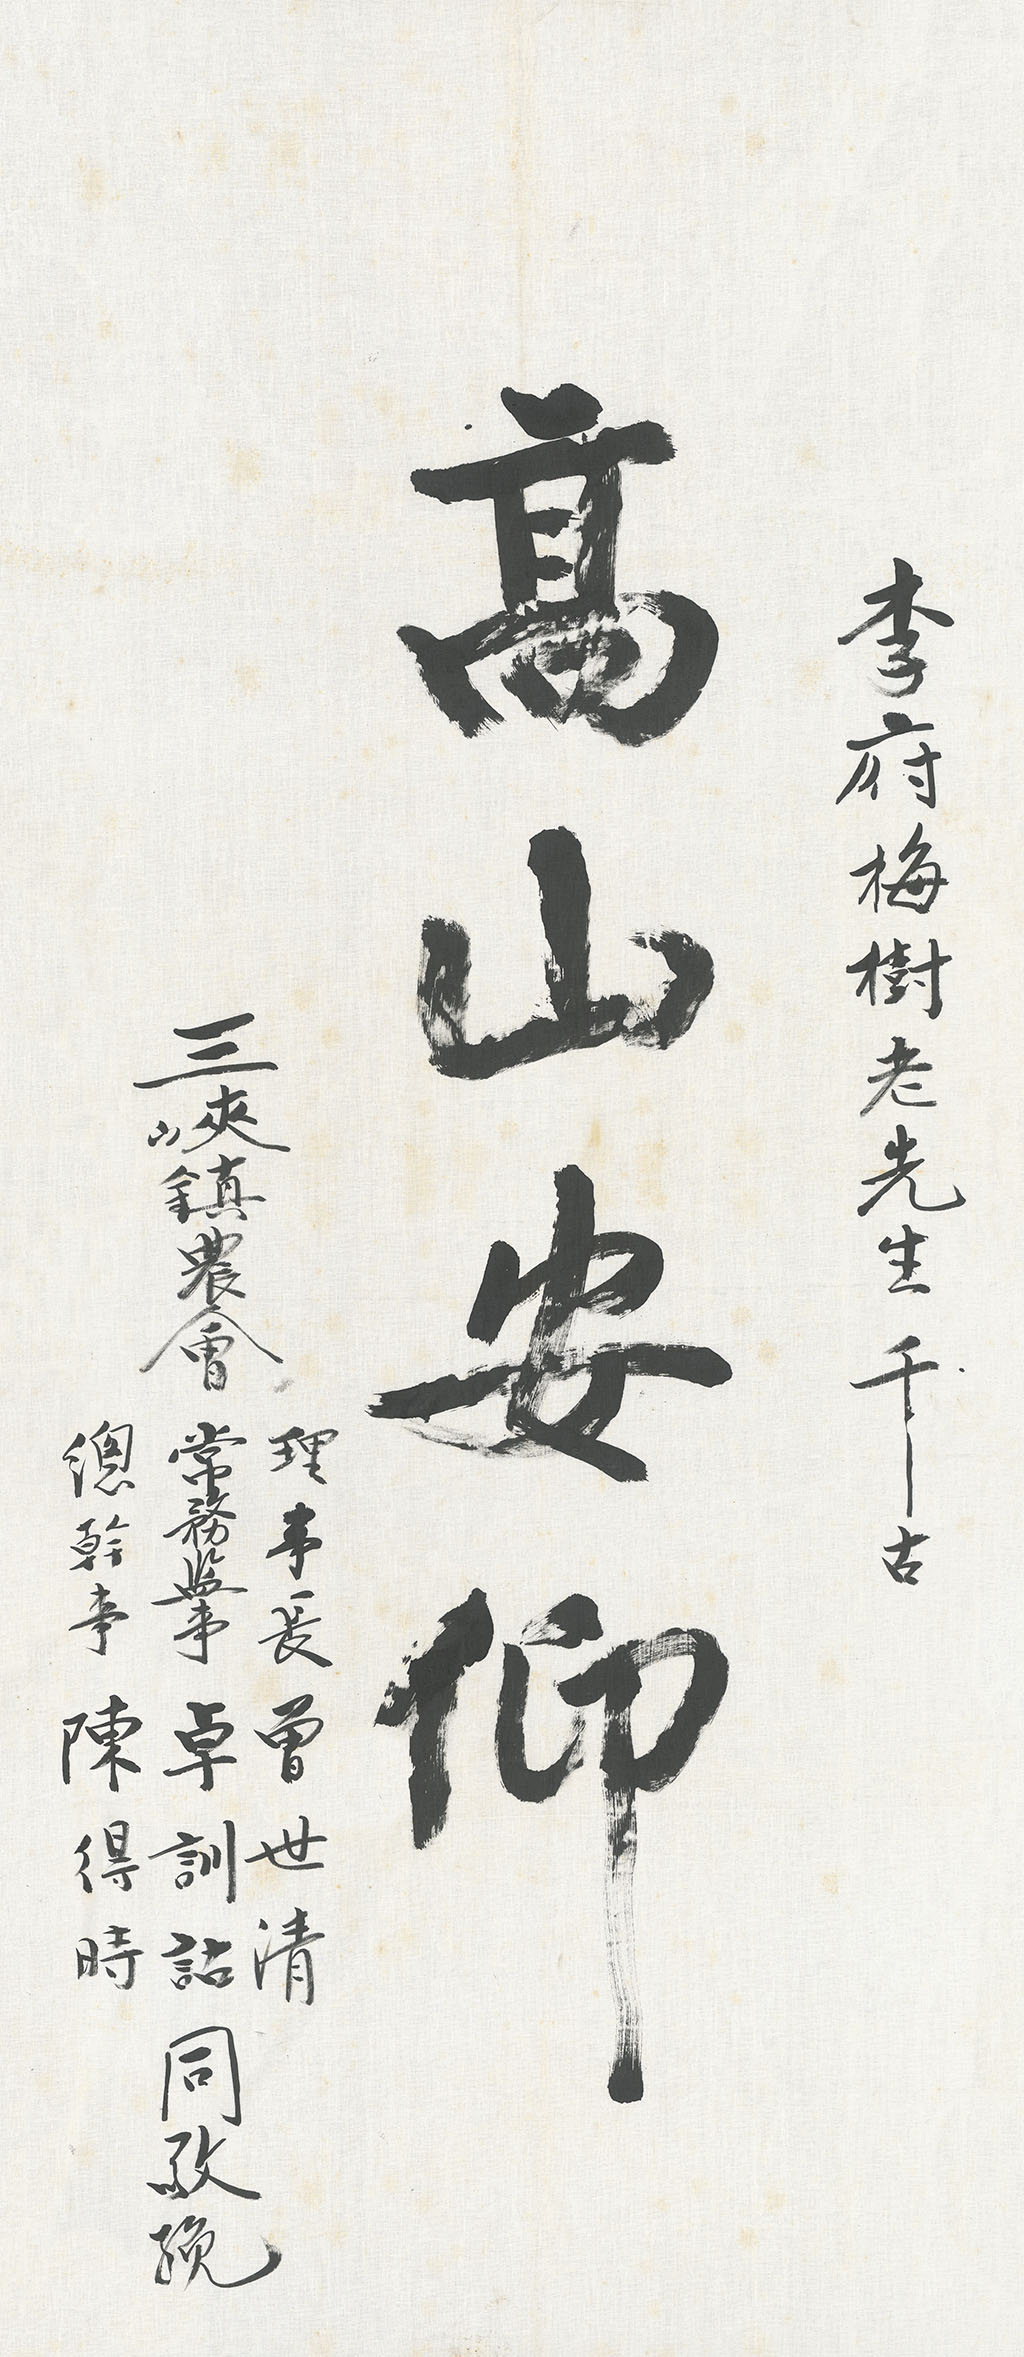 李府梅樹老先生千古
高山安仰
三峽鎮農會
理事長曾世清
常務監事卓訓詁
總幹事陳得時
同敬輓